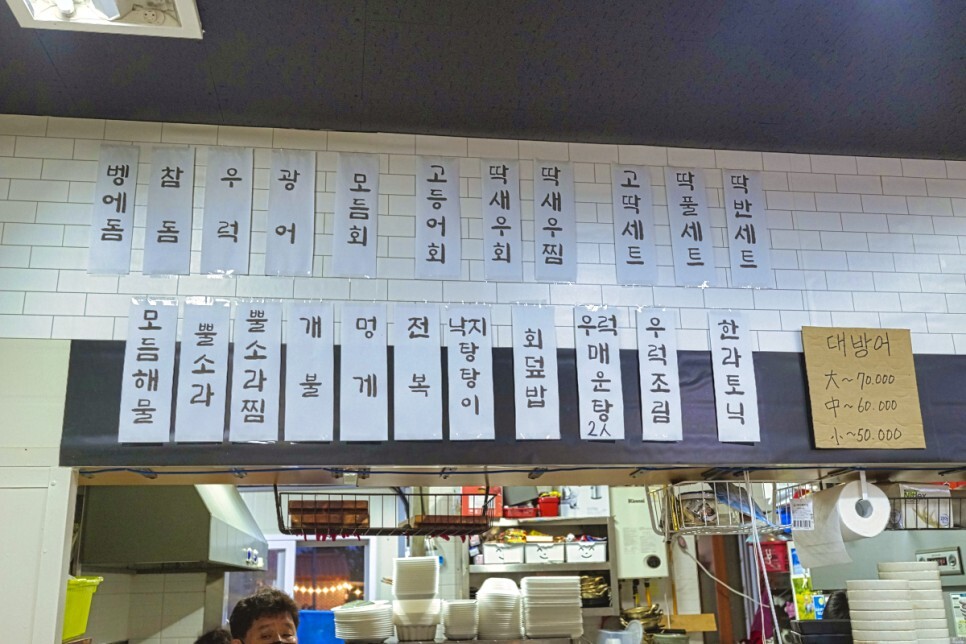 벵에돔
참돔
우럭
광어
모듬회
고등어회
딱새우회
딱새우찜
고딱세트
딱풀세트
딱반세트
모듬해물
뿔소라
뿔소라찜
개불
멍게
전복
낙지탕탕이
회덮밥
우럭매운탕
2人
우럭조림
한라토닉
대방어
大~70.000
中~60.000
小~50.000
Rinnai